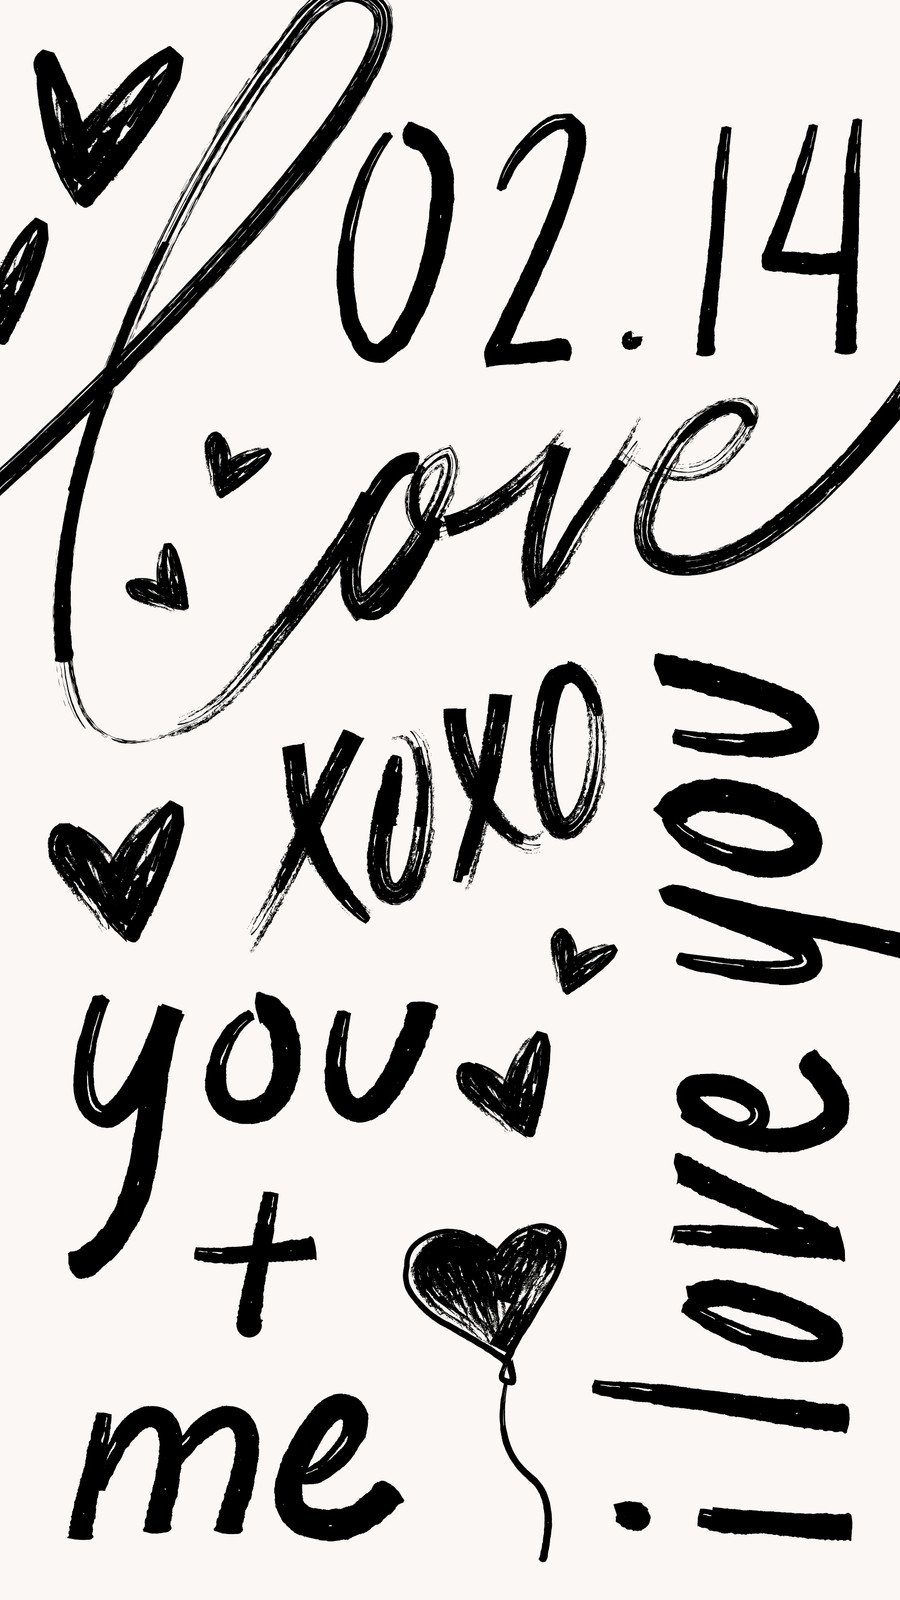 02.14
love
xoxo
you
+
me
i love you